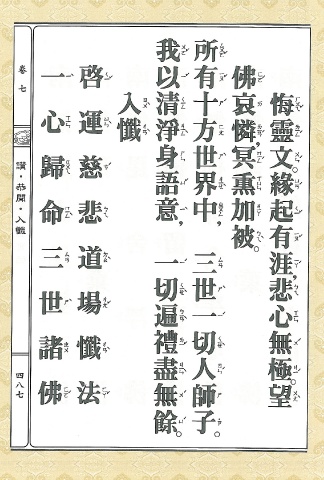 悔靈文。緣起有涯,悲心無極。望
佛哀憐,冥熏加被。
所有十方世界中, 三世一切人師子。
我以清淨身語意, 一切遍禮盡無餘。
入懺
啓運慈悲道場懺法
一心歸命三世諸佛
卷七
讚·恭聞·入懺
四八七